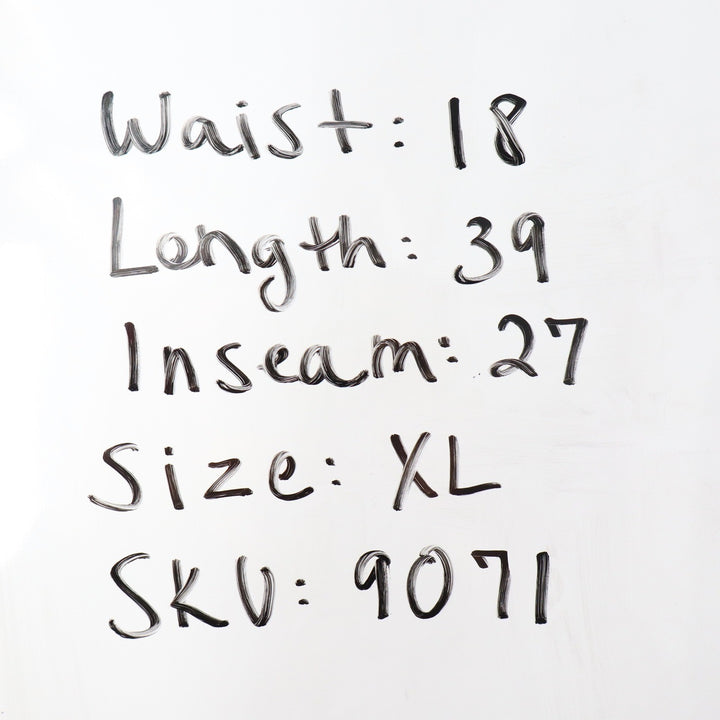 Waist: 18
Length: 39
Inseam: 27
Size: XL
SKU: 9071